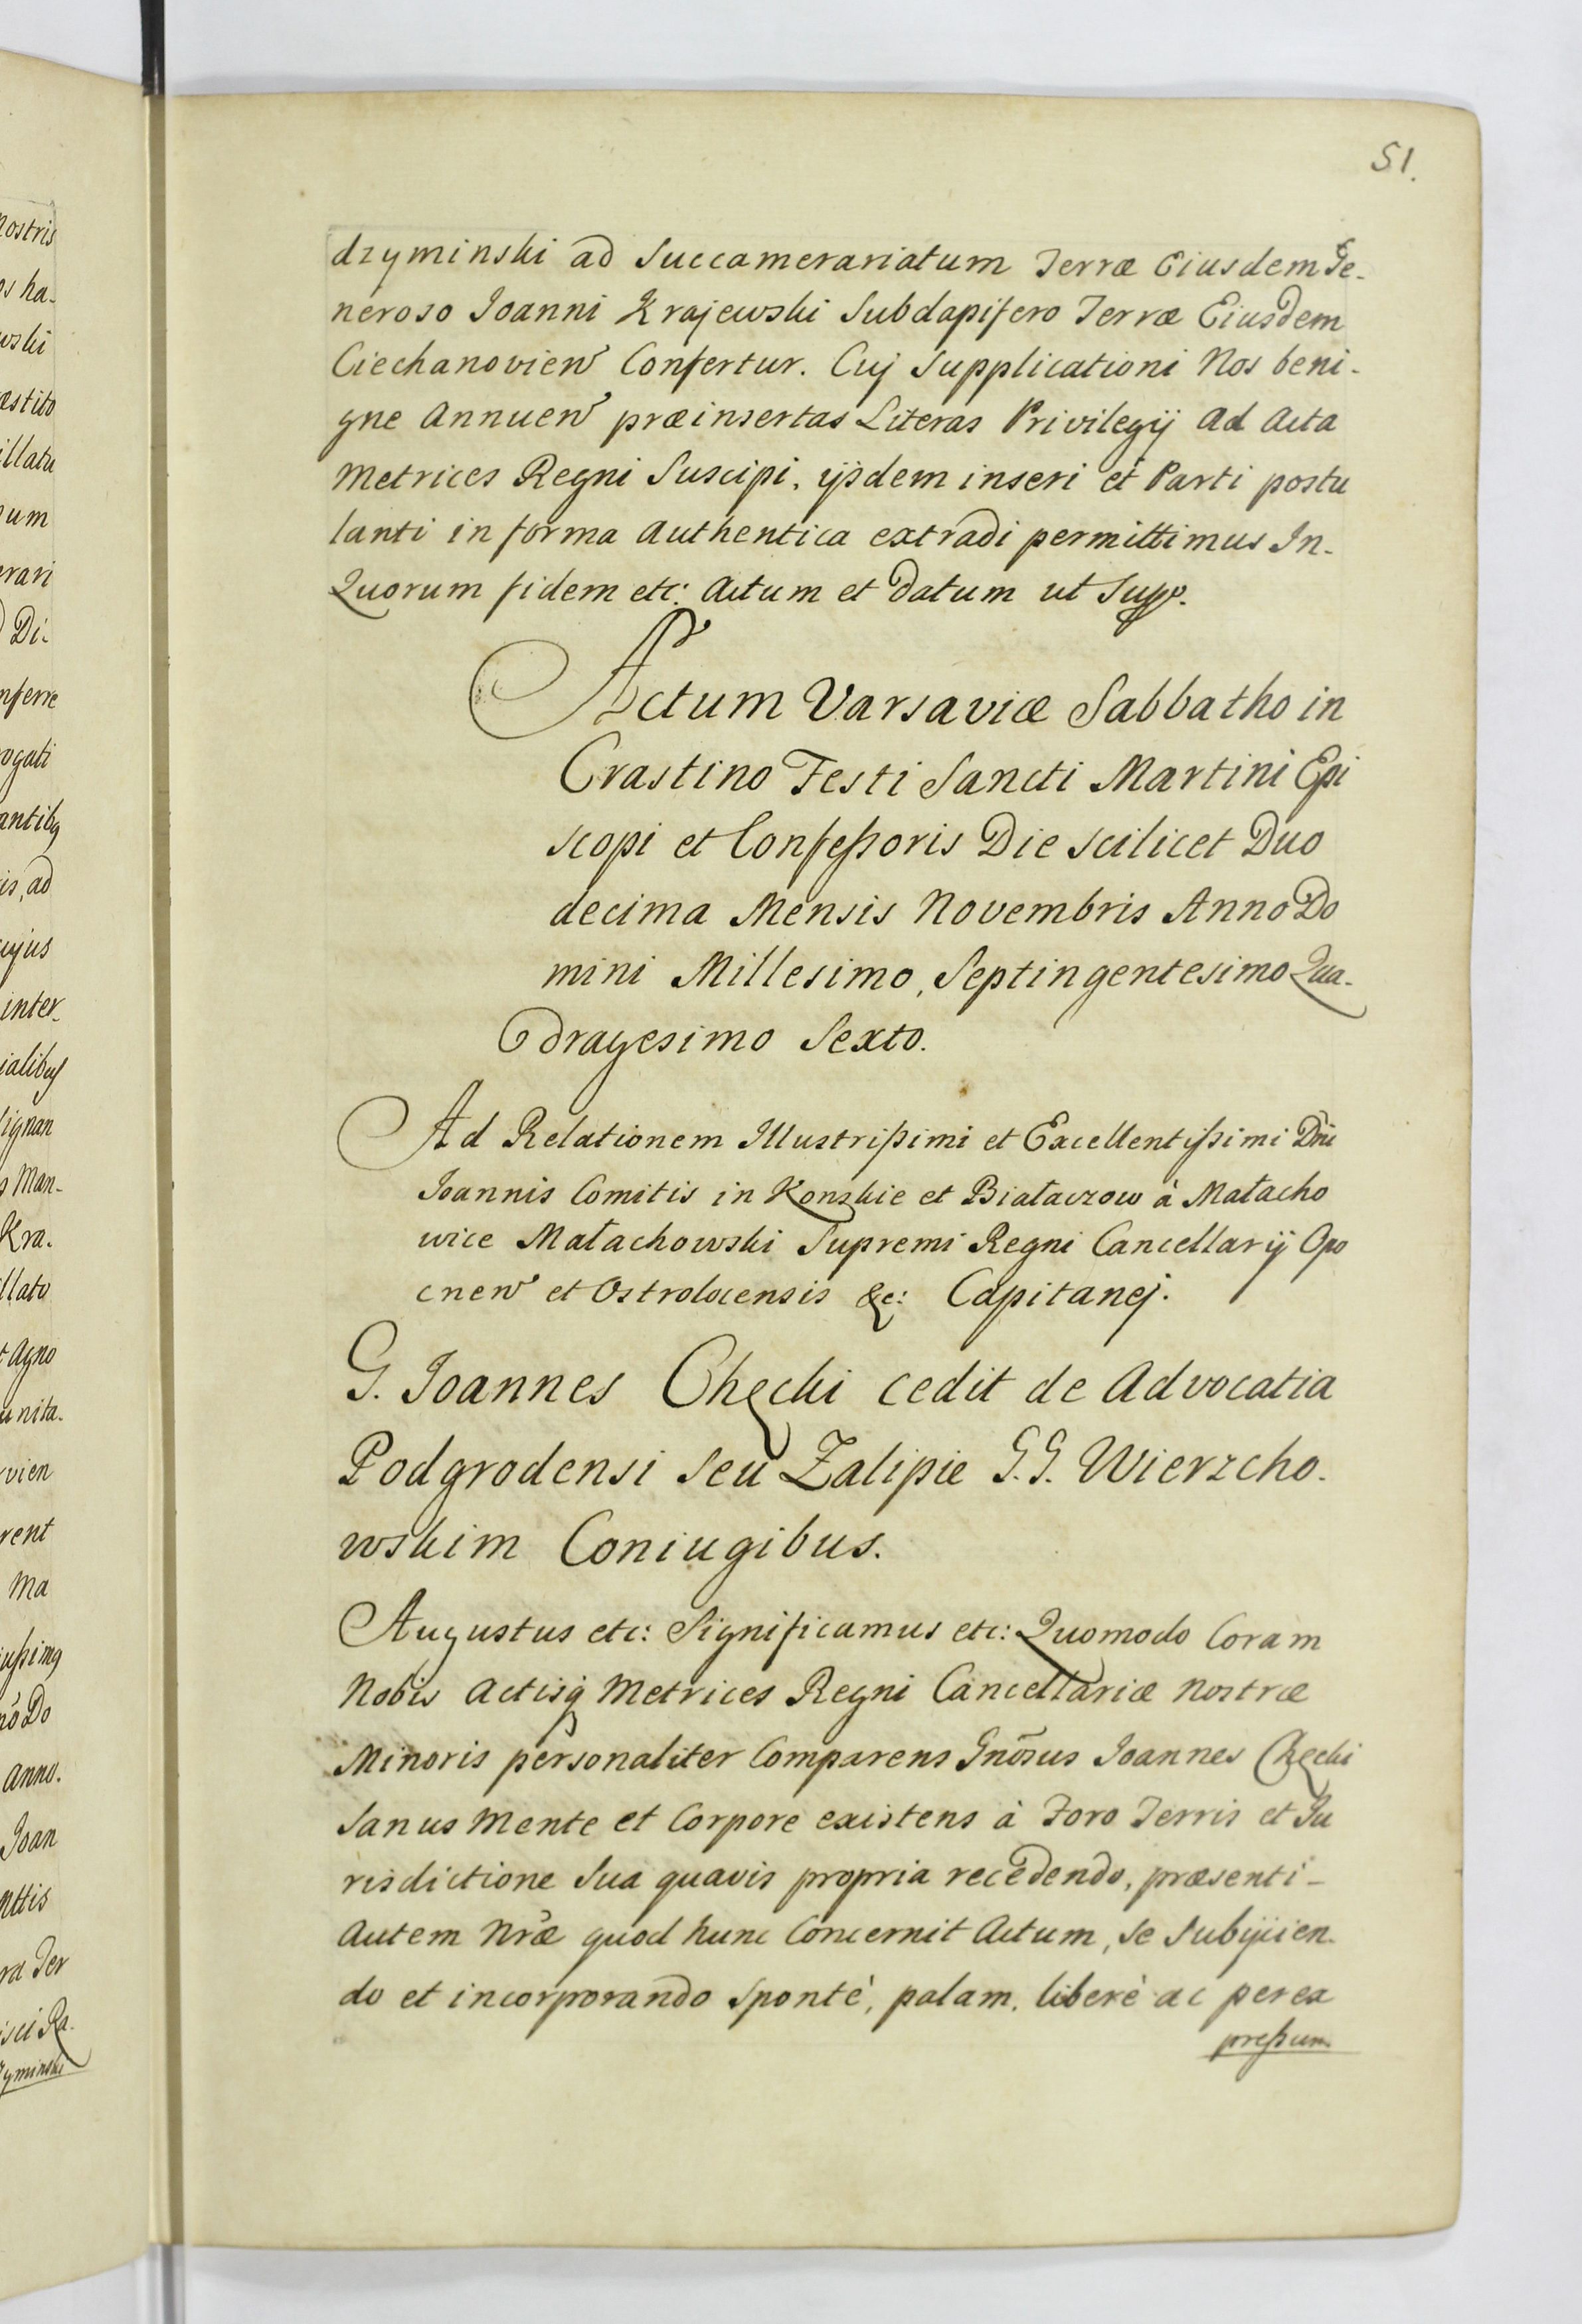 51.
dzyminski ad Succamerariatum Terræ Eiusdem Ge-
neroso Joanni Krajewski Subdapifero Terræ Eiusdem
Ciechanovien Confertur. Cuj Supplicationi Nos beni-
gne Annuen præinsertas Literas Privilegij Ad Acta
Metrices Regni Suscipi, ijsdem inseri et Parti postu
lanti in forma Authentica extradi permittimus In-
Quorum fidem etc: Actum et Datum ut Supp.
Actum Varsaviæ Sabbatho in
Crastino Festi Sancti Martini Epi
scopi et Confessoris Die scilicet Duo
decima Mensis Novembris Anno Do
mini Millesimo, Septingentesimo Qua-
dragesimo Sexto.
Ad Relationem Illustrissimi et Excellentissimi Dni
Joannis Comitis in Konskie et Białaczow à Małacho
wice Małachowski Supremi Regni Cancellarij Opo
cnen et Ostrolocensis &c: Capitanej.
G. Joannes Chęcki cedit de Advocatia
Podgrodensi seu Zalipie G.G. Wierzcho-
wskim Coniugibus.
Augustus etc: Significamus etc: Quomodo Coram
Nobis Actisq Metrices Regni Cancellariæ Nostræ
Minoris personaliter Comparens Gnosus Joannes Chęcki
Sanus Mente et Corpore existens à Foro Terris et Ju
risdictione Sua quavis propria recedendo, præsenti-
Autem Nræ quod hunc Concernit Actum, se Subijcien-
do et incorporando Spontè, palam, liberè ac per ex
pressum